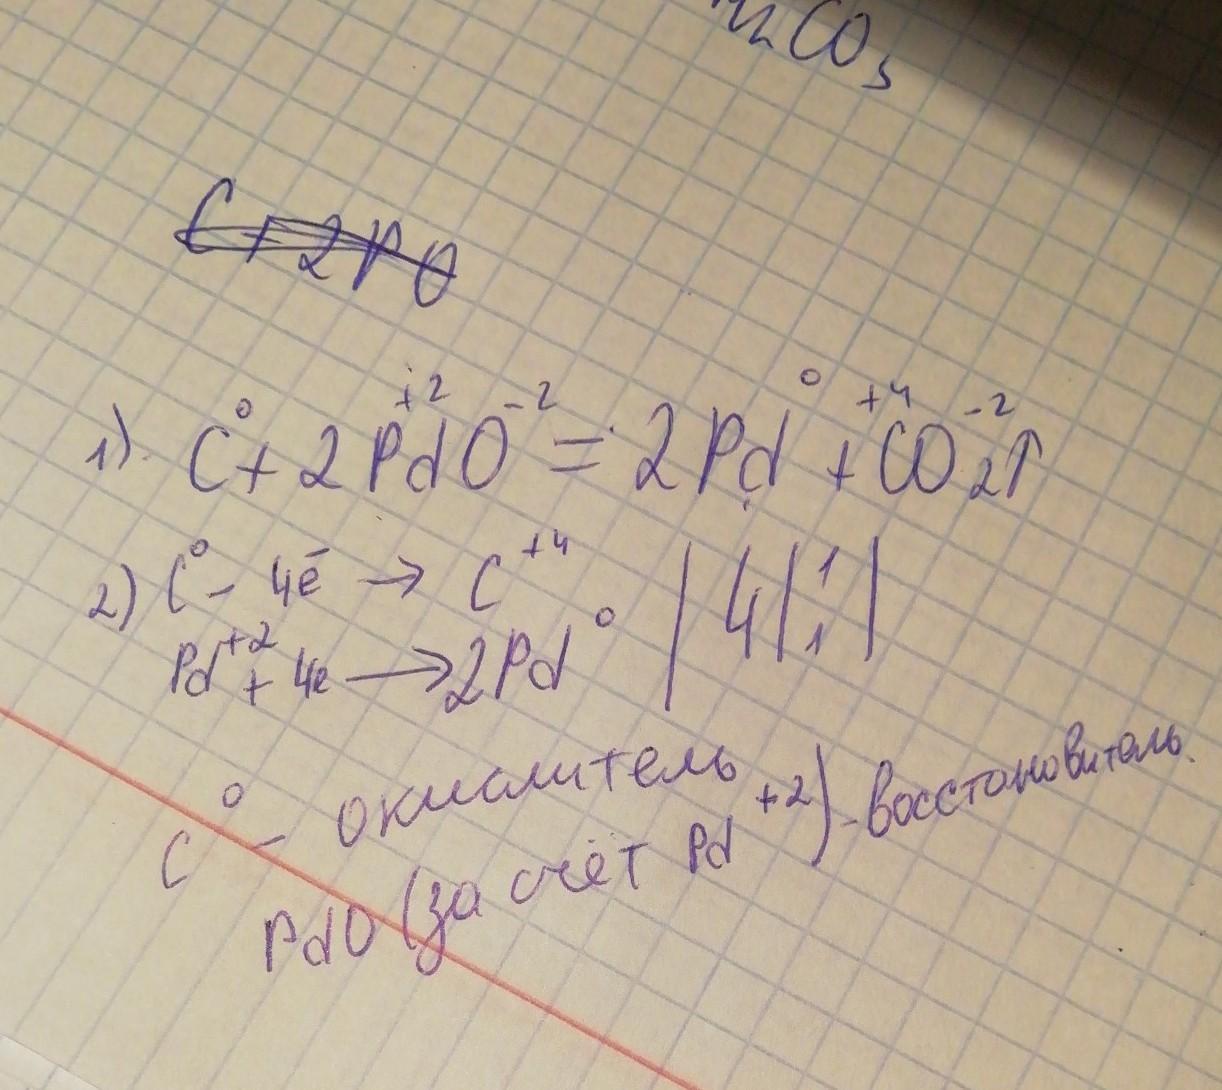 CO₃
C + 2PO
1). C⁰ + 2Pd⁺²O⁻² = 2Pd⁰ + C⁺⁴O₂⁻²↑
2) C⁰ - 4ē → C⁺⁴ | 4 | 1 |
Pd⁺² + 4e → 2Pd⁰ | | 1 |
C⁰ - окислитель
PdO (за счёт Pd⁺²) - восстановитель.